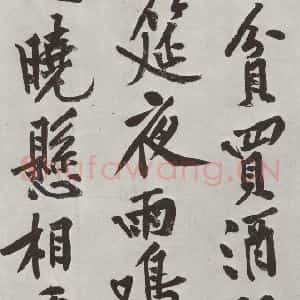 貧買酒
筵夜雨鳴
曉懸相
Shufawang.CN